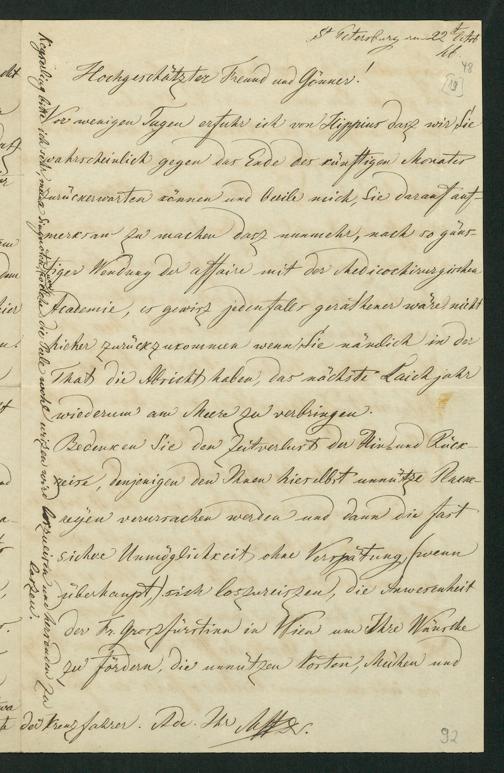 St Petersburg
48
[19]
Hochgeschätzter Freund und Gönner!
Vor wenigen Tagen erfuhr ich von Hippius dasz wir Sie
wahrscheinlich gegen das Ende des künftigen Monates
zurückerwarten können und beeile mich, Sie darauf auf-
merksam zu machen dasz nunmehr, nach so güns-
tiger Wendung der affaire mit der Medicochirurgischen
Academie, es gewisz jedenfalls gerathener wäre nicht
hieher zurückzukommen wenn Sie nämlich in der
That die Absicht haben, das nächste Laichjahr
wiederum am Meere zu verbringen.
Bedenken Sie den Zeitverlust der Hin und Rück-
reise, denjenigen den Ihnen hieselbst unnütze
verursachen werden und dann die fast
sichere Unmöglichkeit ohne Verspätung (wenn
überhaupt) sich loszureiszen, die Anwesenheit
der Fr. Groszfürstinn in Wien um Ihre Wünsche
zu fördern, die unnützen Kosten, Mühen und
der Kreuzfahrer. Ade. Ihr
92
bitte ich die wohl wissen wird und zu
lassen.